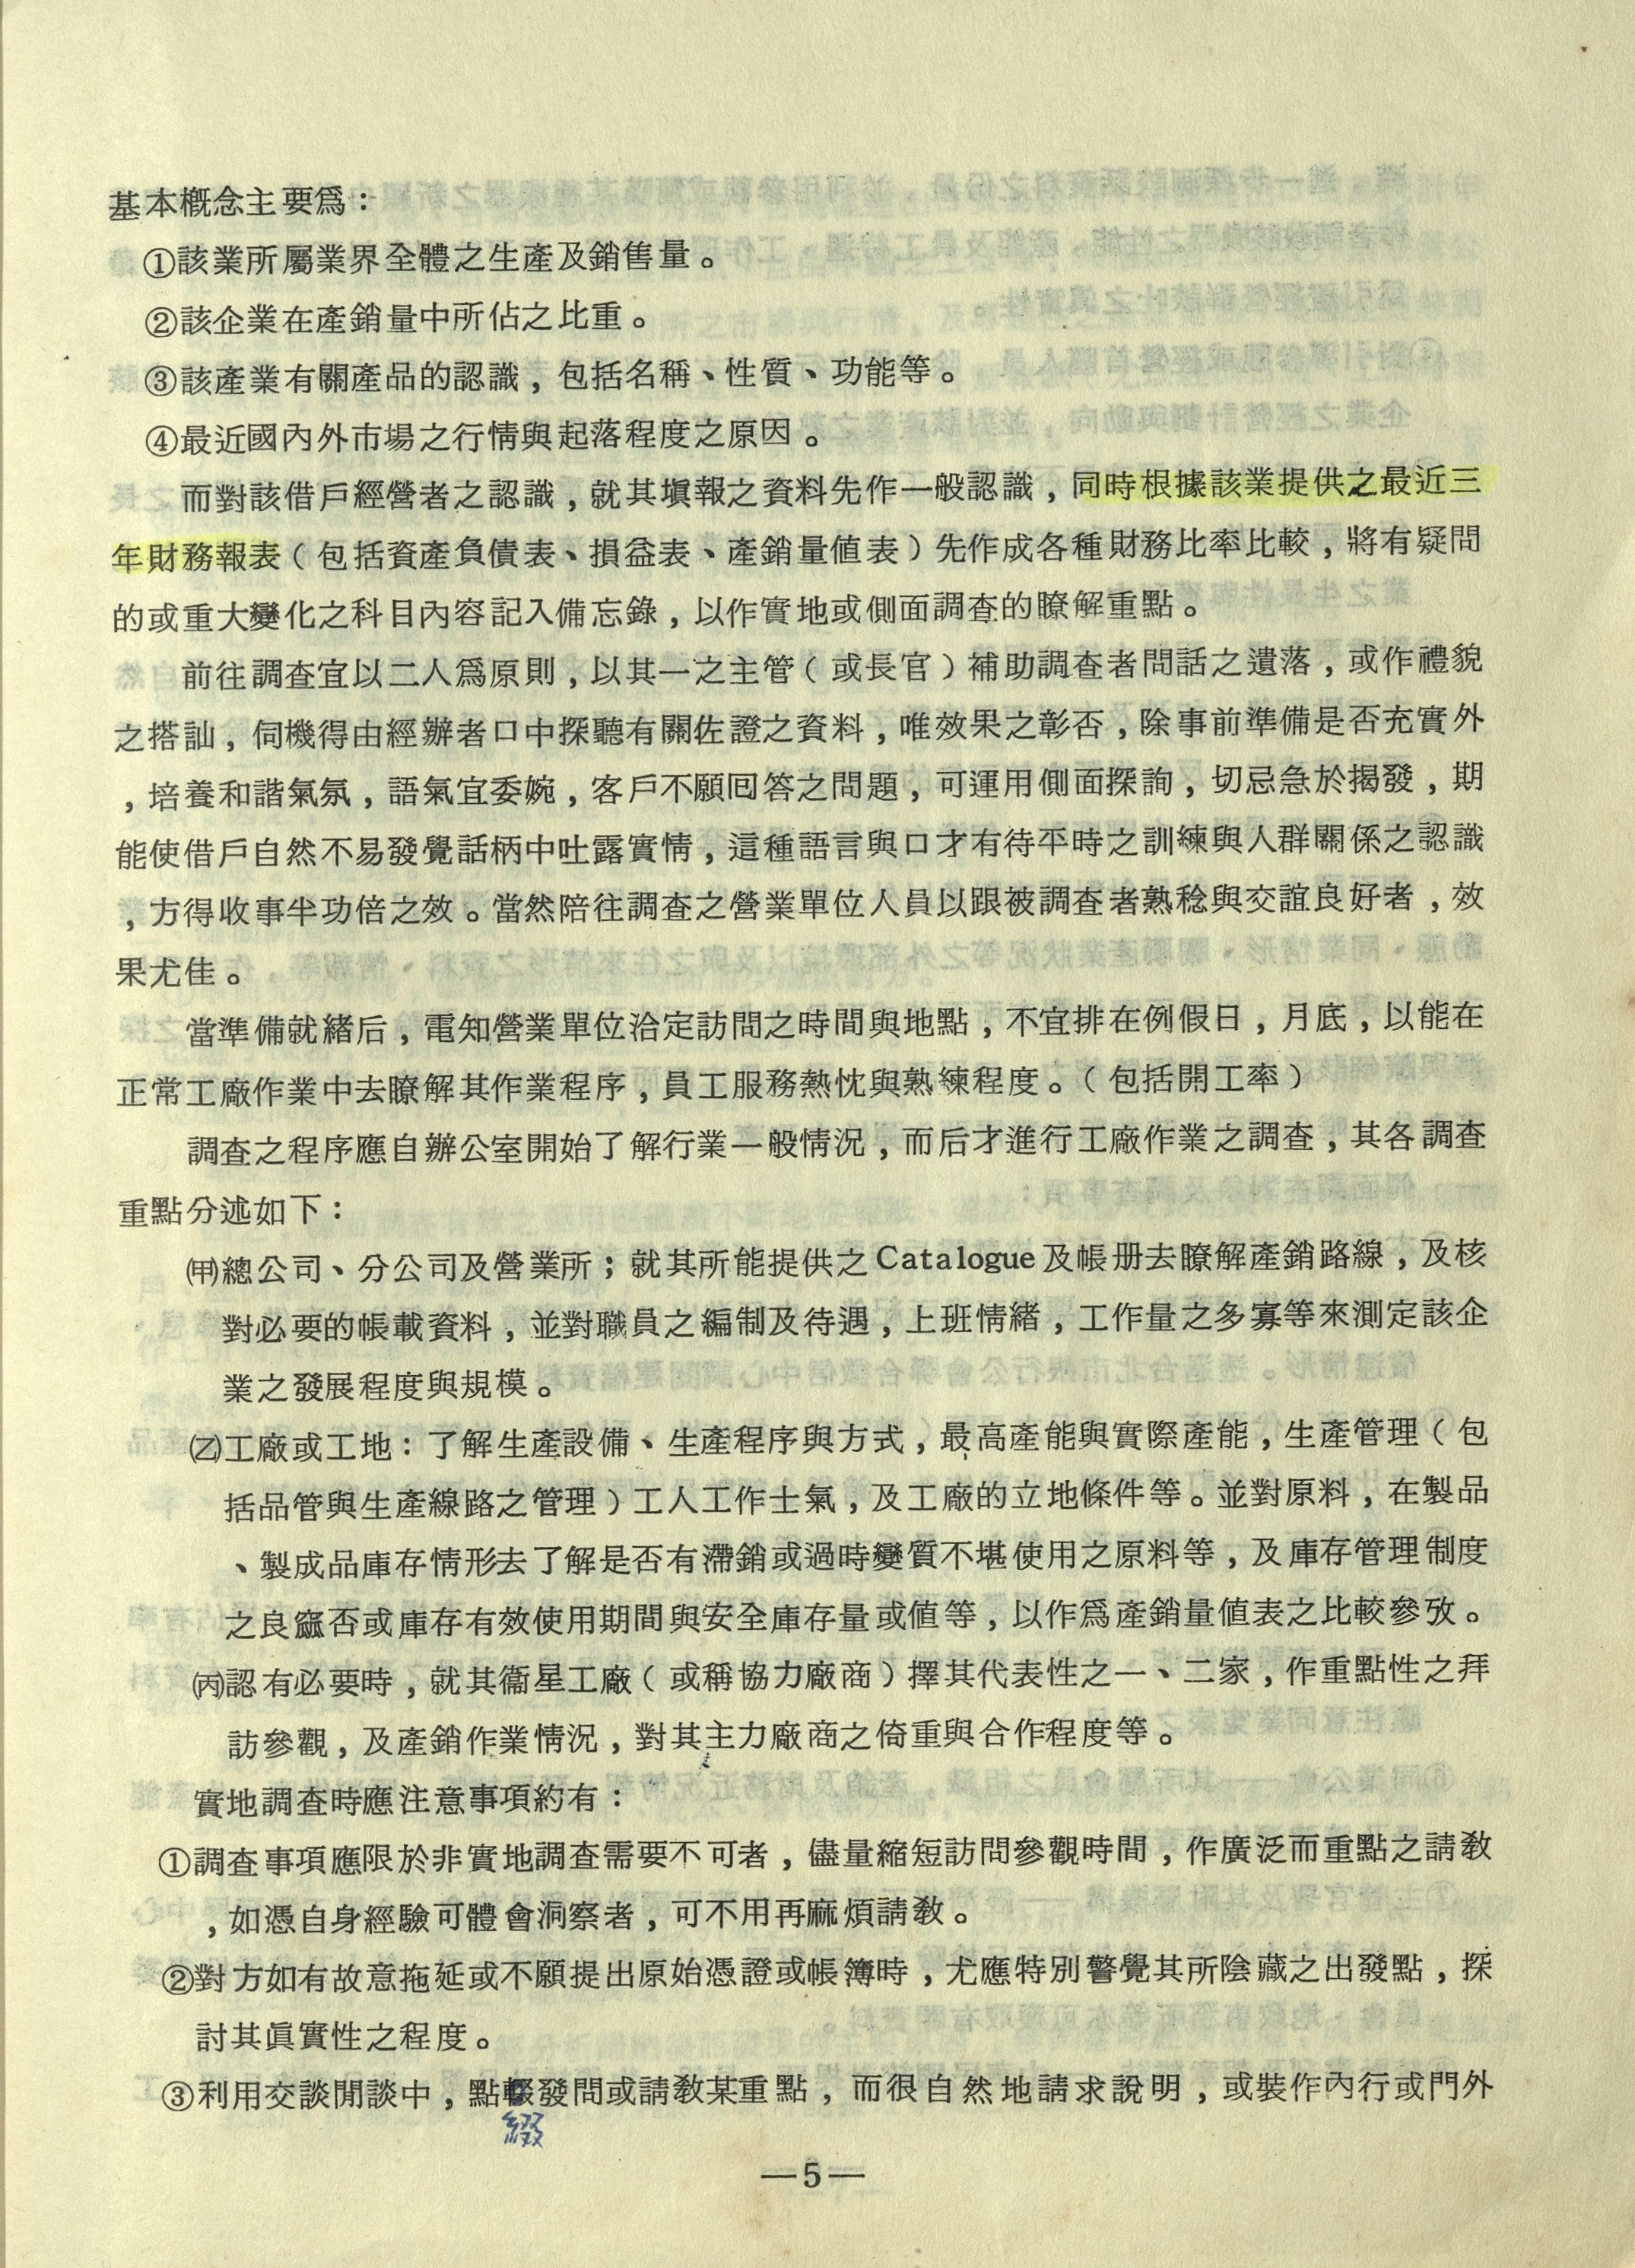 基本概念主要爲：
①該業所屬業界全體之生產及銷售量。
②該企業在產銷量中所佔之比重。
③該產業有關產品的認識，包括名稱、性質、功能等。
④最近國內外市場之行情與起落程度之原因。
而對該借戶經營者之認識，就其塡報之資料先作一般認識，同時根據該業提供之最近三
年財務報表（包括資產負債表、損益表、產銷量値表）先作成各種財務比率比較，將有疑問
的或重大變化之科目內容記入備忘錄，以作實地或側面調查的瞭解重點。
前往調查宜以二人爲原則，以其一之主管（或長官）補助調查者問話之遺落，或作禮貌
之搭訕，伺機得由經辦者口中探聽有關佐證之資料，唯效果之彰否，除事前準備是否充實外
，培養和諧氣氛，語氣宜委婉，客戶不願回答之問題，可運用側面探詢，切忌急於揭發，期
能使借戶自然不易發覺話柄中吐露實情，這種語言與口才有待平時之訓練與人群關係之認識
，方得收事半功倍之效。當然陪往調查之營業單位人員以跟被調查者熟稔與交誼良好者，效
果尤佳。
當準備就緒后，電知營業單位洽定訪問之時間與地點，不宜排在例假日，月底，以能在
正常工廠作業中去瞭解其作業程序，員工服務熱忱與熟練程度。（包括開工率）
調查之程序應自辦公室開始了解行業一般情況，而后才進行工廠作業之調查，其各調查
重點分述如下：
㈙總公司、分公司及營業所；就其所能提供之Catalogue及帳册去瞭解產銷路線，及核
對必要的帳載資料，並對職員之編制及待遇，上班情緒，工作量之多寡等來測定該企
業之發展程度與規模。
㈚工廠或工地：了解生產設備、生產程序與方式，最高產能與實際產能，生產管理（包
括品管與生產線路之管理）工人工作士氣，及工廠的立地條件等。並對原料，在製品
、製成品庫存情形去了解是否有滯銷或過時變質不堪使用之原料等，及庫存管理制度
之良窳否或庫存有效使用期間與安全庫存量或値等，以作爲產銷量値表之比較參攷。
㈛認有必要時，就其衞星工廠（或稱協力廠商）擇其代表性之一、二家，作重點性之拜
訪參觀，及產銷作業情況，對其主力廠商之倚重與合作程度等。
實地調查時應注意事項約有：
①調查事項應限於非實地調查需要不可者，儘量縮短訪問參觀時間，作廣泛而重點之請教
，如憑自身經驗可體會洞察者，可不用再麻煩請敎。
②對方如有故意拖延或不願提出原始憑證或帳簿時，尤應特別警覺其所陰藏之出發點，探
討其眞實性之程度。
③利用交談閒談中，點輟發問或請敎某重點，而很自然地請求說明，或裝作內行或門外
綴
—5—